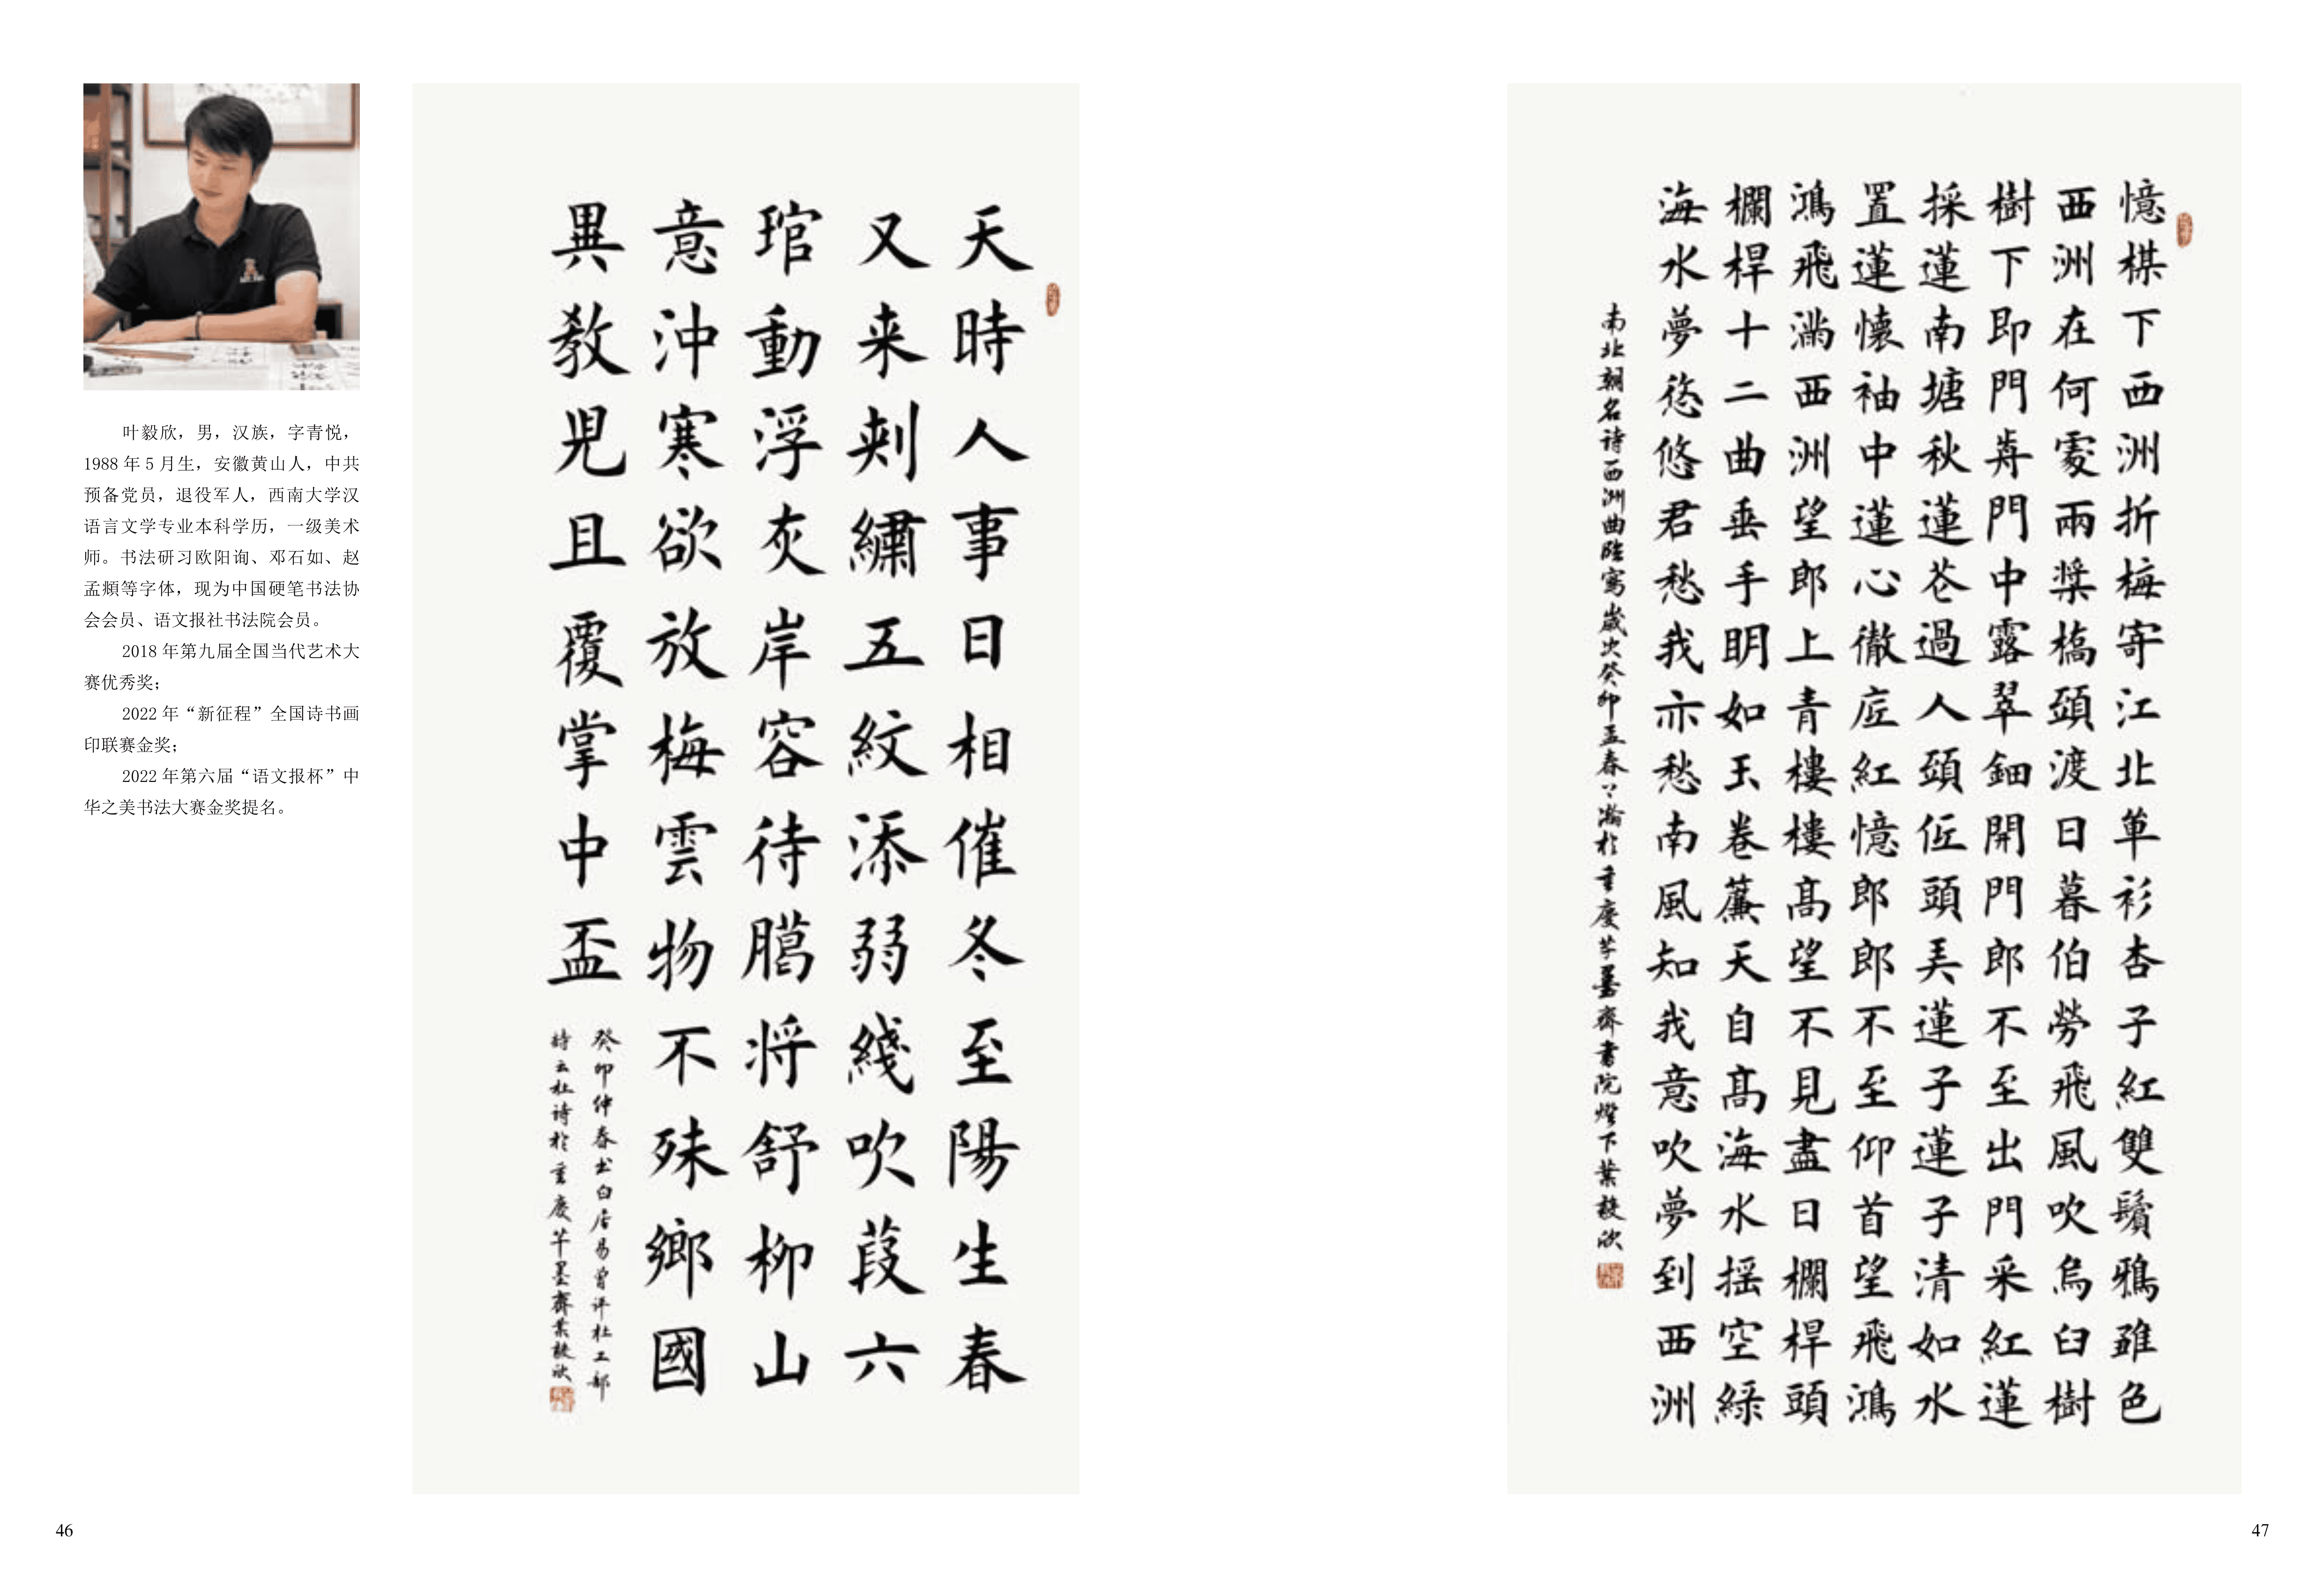 叶毅欣，男，汉族，字青悦，
1988 年 5 月生，安徽黄山人，中共
预备党员，退役军人，西南大学汉
语言文学专业本科学历，一级美术
师。书法研习欧阳询、邓石如、赵
孟頫等字体，现为中国硬笔书法协
会会员、语文报社书法院会员。
2018 年第九届全国当代艺术大
赛优秀奖；
2022 年“新征程”全国诗书画
印联赛金奖；
2022 年第六届“语文报杯”中
华之美书法大赛金奖提名。
天時人事日相催冬至陽生春
又来刺繡五紋添弱綫吹葭六
琯動浮灰岸容待臈将舒柳山
意沖寒欲放梅雲物不殊鄉國
異教児且覆掌中盃
癸卯仲春书白居易曾评杜工部
詩云杜诗於重慶芊墨齋葉毅欣
憶棋下西洲折梅寄江北单衫杏子紅雙鬢鴉雖色
西洲在何處兩槳橋頭渡日暮伯勞飛風吹烏臼樹
樹下即門前門中露翠鈿開門郎不至出門采紅蓮
採蓮南塘秋蓮花過人頭低頭弄蓮子蓮子清如水
置蓮懷袖中蓮心徹底紅憶郎郎不至仰首望飛鴻
鴻飛滿西洲望郎上青樓樓高望不見盡日欄桿頭
欄桿十二曲垂手明如玉卷簾天自高海水摇空緑
海水夢悠悠君愁我亦愁南風知我意吹夢到西洲
南北朝名诗西洲曲臨寫歲次癸卯孟春于瀚於重慶芊墨齋書院燈下葉毅欣
46
47